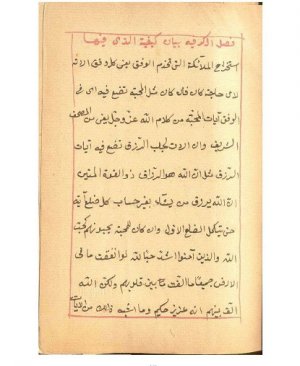 فصل اذكر فيه بيان كيفية الذي فيها
استخراج الملائكة التي تخدم الوفق يعني كل وفق الاثر
لاي حاجته كان فان كان مثل المحبة تضع فيه اي في
الوفق آيات المحبة من كلام الله عز وجل يعني من المصحف
الشريف وان اردت لجلب الرزق تضع فيه آيات
الرزق مثل ان الله هو الرزاق ذو القوة المتين
ان الله يرزق من يشاء بغير حساب كل ضلع آية
حتى يتكمل الضلع الاول وان كان للمحبة يحبونهم كحب
الله والذين آمنوا اشد حبا لله لو انفقت ما في
الارض جميعا ما الفت ما بين قلوبهم ولكن الله
الف بينهم انه عزيز حكيم وما اشبه ذلك من الآيات